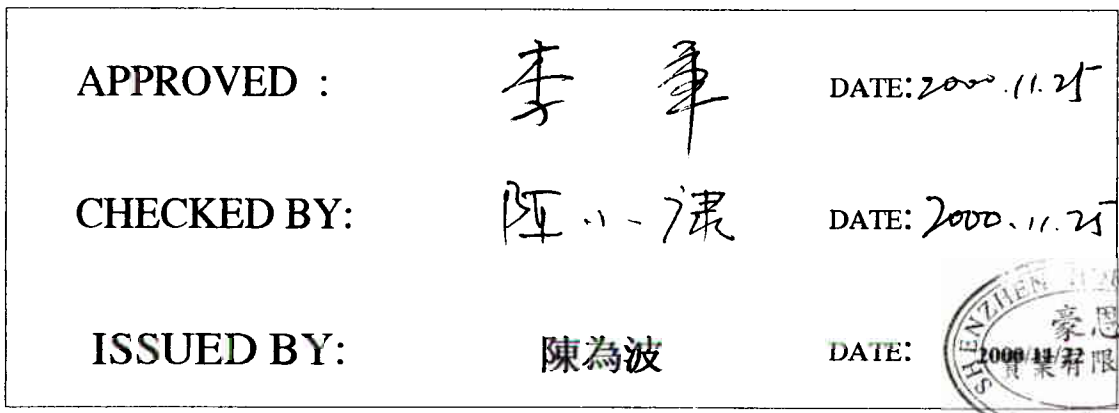 APPROVED : 李 章 DATE: 2000.11.25
CHECKED BY: 陈小 DATE: 2000.11.25
ISSUED BY: 陳為波 DATE: 2000/11/22
SHENZHEN
豪恩
實業有限